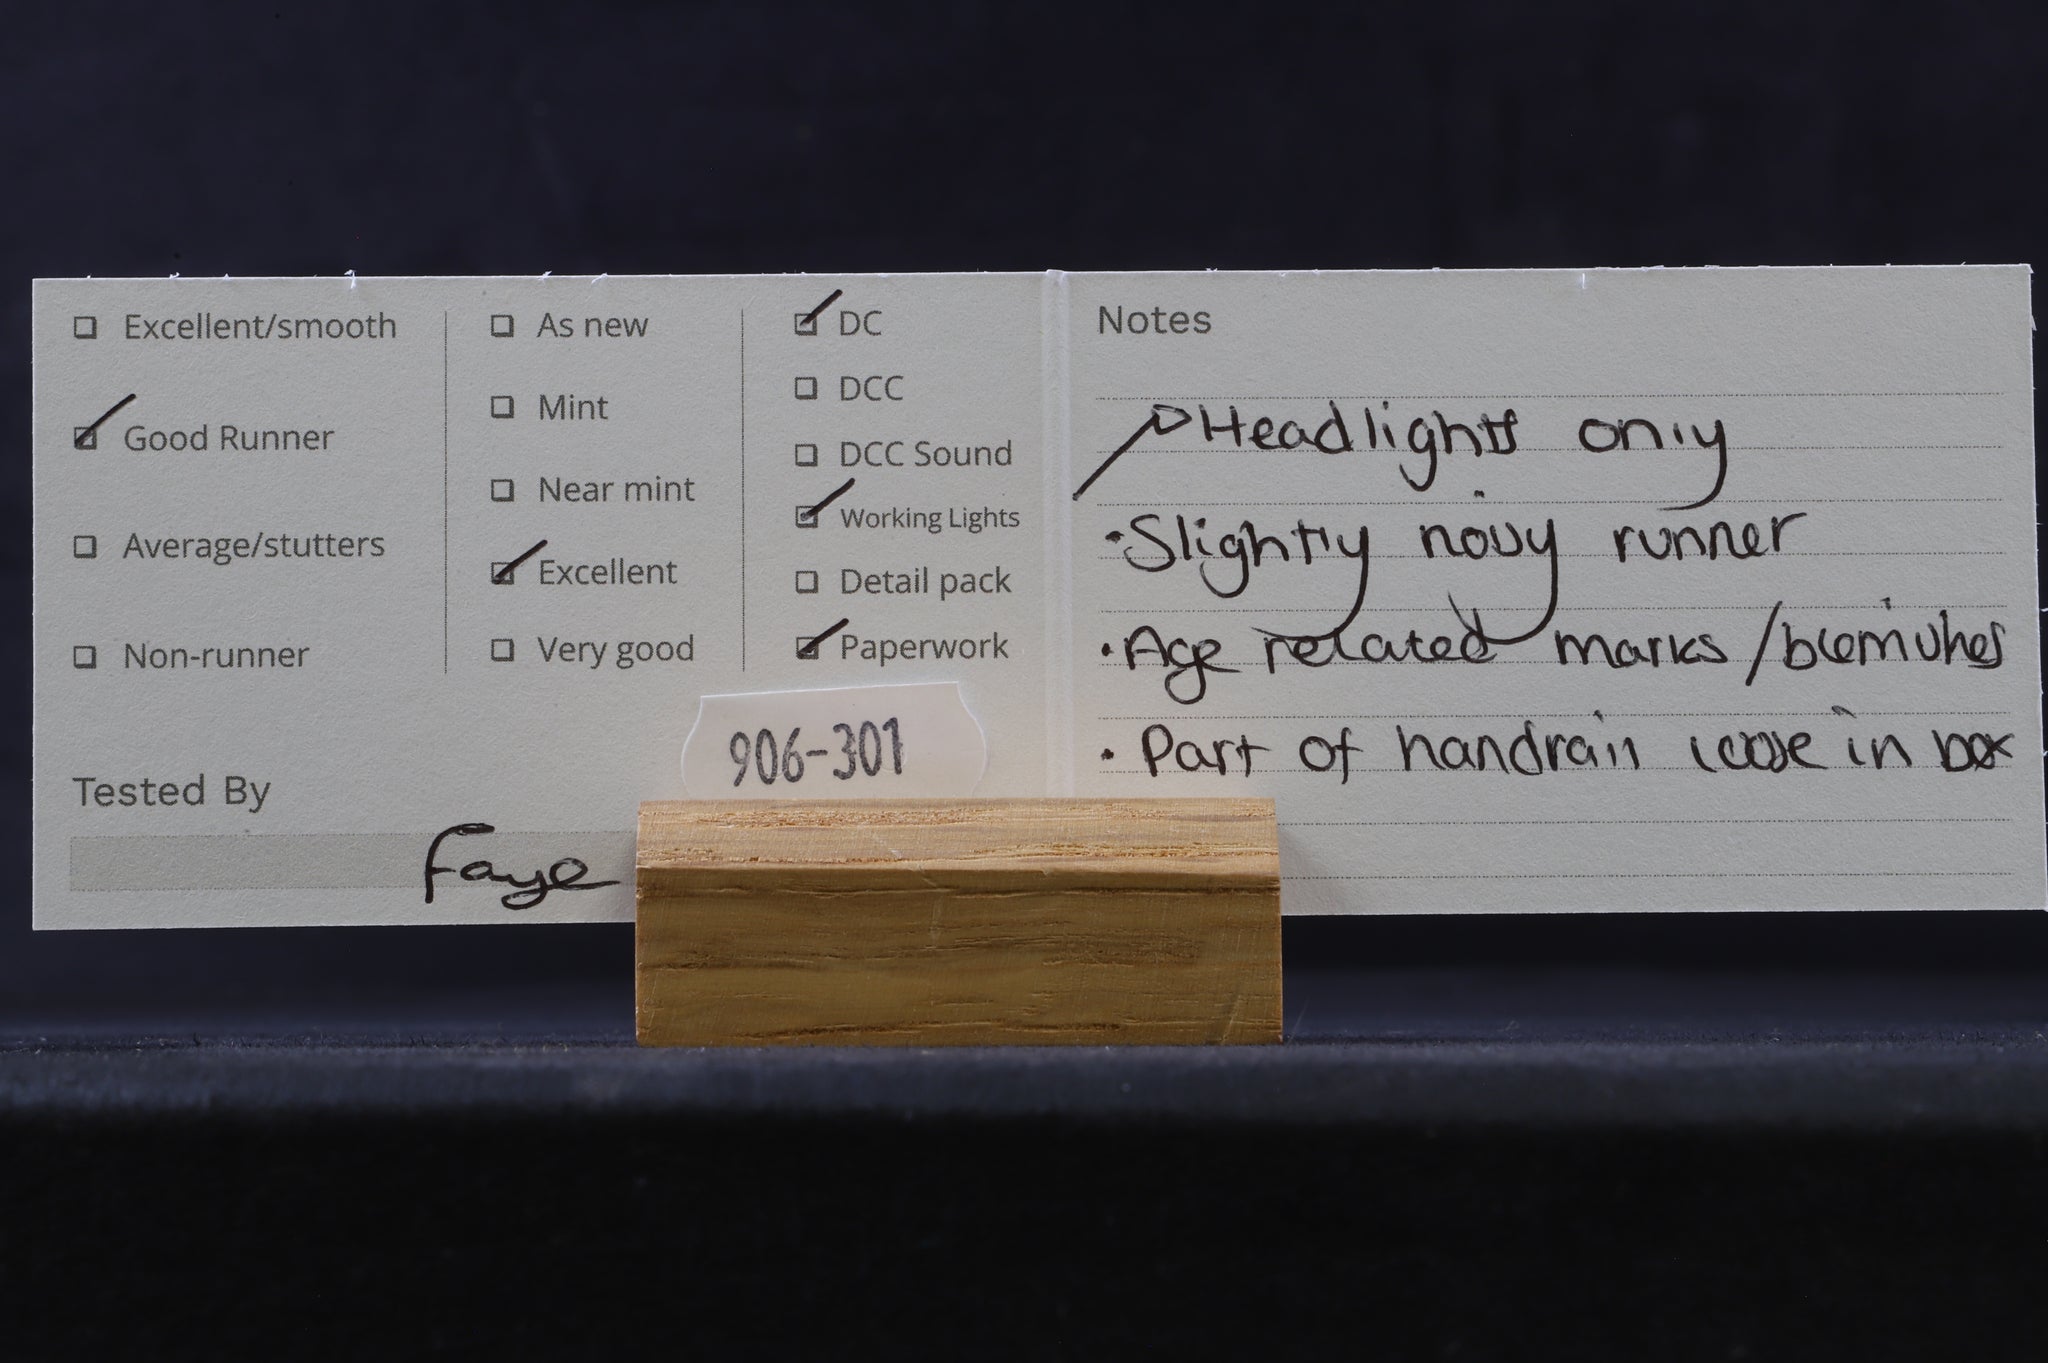 Excellent/smooth
Good Runner
Average/stutters
Non-runner
As new
Mint
Near mint
Excellent
Very good
DC
DCC
DCC Sound
Working Lights
Detail pack
Paperwork
906-301
Tested By
Faye
Notes
Headlights only
• Slightly noisy runner
• Age related marks / blemishes
• Part of handrail loose in box